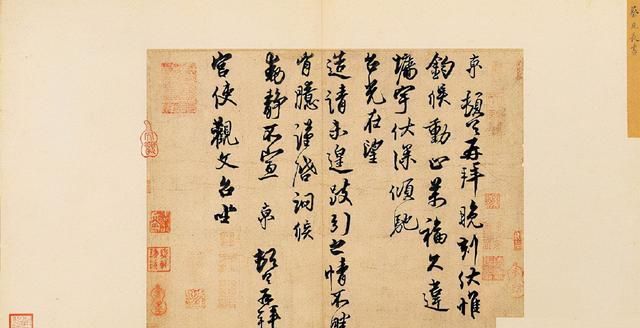 蔡元長書
京頓首再拜晚刻伏惟
鈞候動止萬福久違
墉宇伏深傾馳
台光在望
造請未遑跂引之情不勝
胷臆謹啓詞候
動靜不宣 京 頓首再拜
宮使觀文台坐